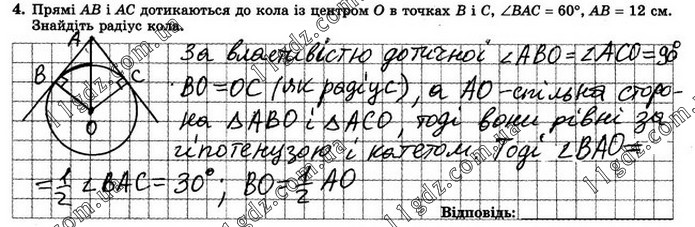 4. Прямі AB і AC дотикаються до кола із центром O в точках B і C, ∠BAC = 60°, AB = 12 см.
Знайдіть радіус кола.
За властивістю дотичної ∠ABO = ∠ACO = 90°
BO = OC (як радіус), а AO - спільна сторо-
на △ABO і △ACO, тоді вони рівні за
гіпотенузою і катетом. Тоді ∠BAO =
= 1/2 ∠BAC = 30°; BO = 1/2 AO
A
B
C
O
Відповідь:
11gdz.com.ua